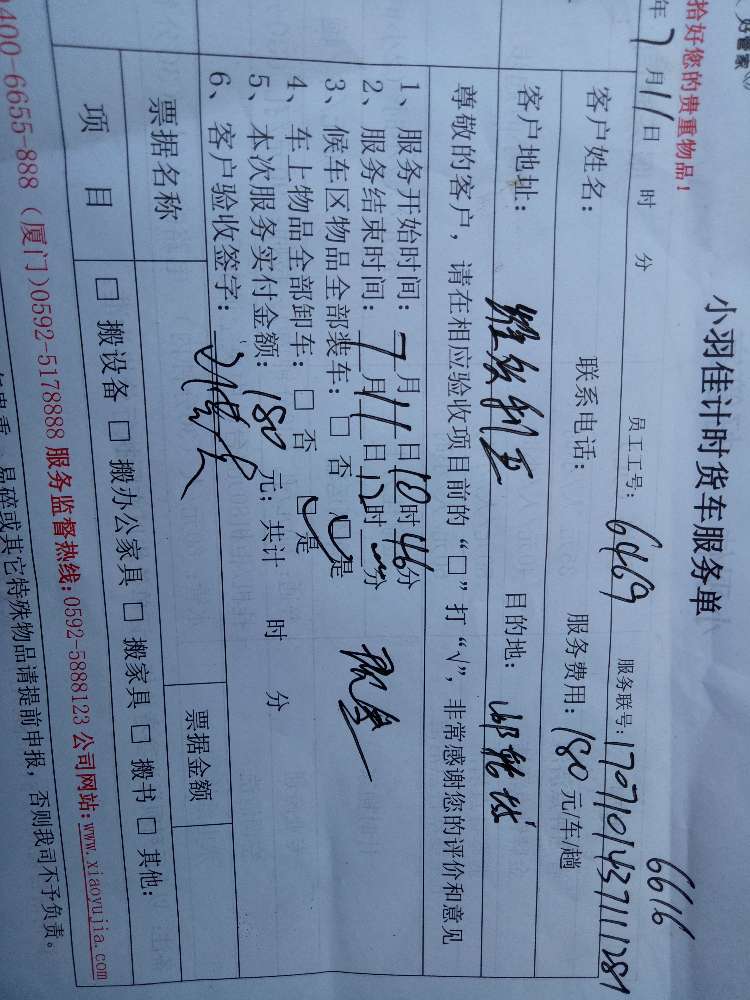 好管家
拾好您的贵重物品！
小羽佳计时货车服务单
6616
年7月11日 时 分 员工工号：6469 服务联号：1707101437111281
客户姓名： 联系电话： 服务费用：180元/车/趟
客户地址： 目的地：邮轮城
尊敬的客户，请在相应验收项目前的“□”打“√”，非常感谢您的评价和意见
1、服务开始时间：7月11日10时46分
2、服务结束时间：7月11日12时 分
3、候车区物品全部装车：□ 否 □是
4、车上物品全部卸车：□ 否 □是
现金
5、本次服务实付金额：180元；共计 时 分
6、客户验收签字：
票据名称 票据金额
项 目 □ 搬设备 □ 搬办公家具 □ 搬家具 □ 搬书 □ 其他：
400-6655-888（厦门）0592-5178888 服务监督热线：0592-5888123 公司网站：www.xiaoyujia.com
易碎或其它特殊物品请提前申报，否则我司不予负责。